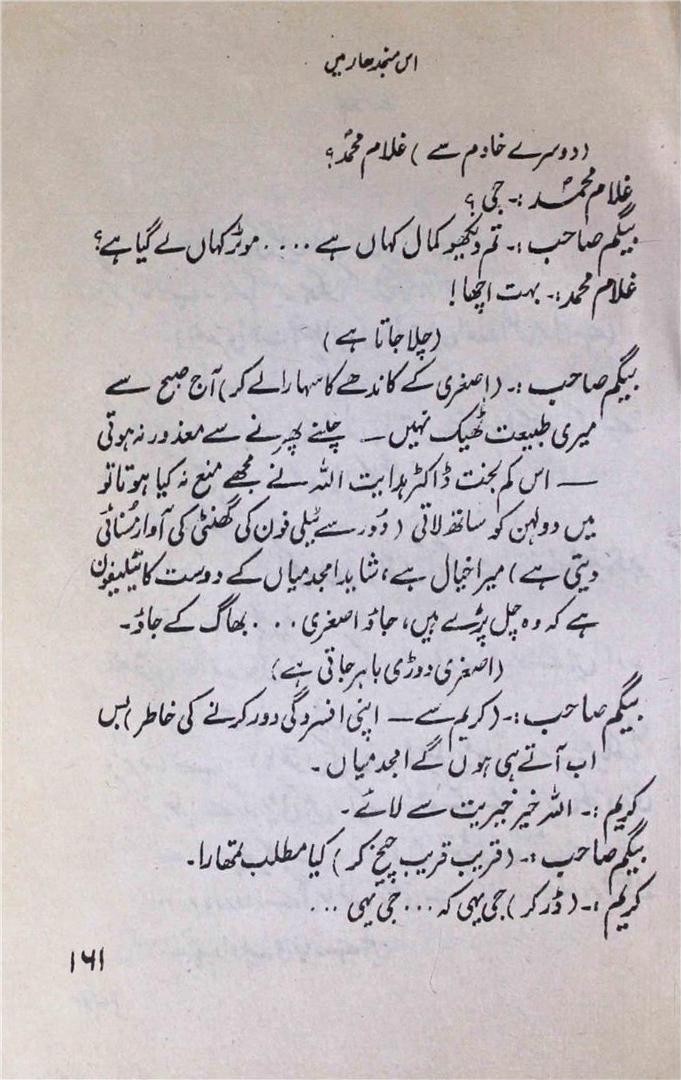 اس منجدھار میں
(دوسرے خادم سے) غلام محمد؟
غلام محمد :۔ جی؟
بیگم صاحب :۔ تم دیکھو کمال کہاں ہے .... موٹر کہاں لے گیا ہے؟
غلام محمد :۔ بہت اچھا!
(چلا جاتا ہے)
بیگم صاحب :۔ (اصغری کے کاندھے کا سہارا لے کر) آج صبح سے
میری طبیعت ٹھیک نہیں — چلنے پھرنے سے معذور نہ ہوتی
— اس کم بخت ڈاکٹر ہدایت اللہ نے مجھے منع نہ کیا ہوتا تو
میں دولہن کو ساتھ لاتی (دُور سے ٹیلی فون کی گھنٹی کی آواز سُنائی
دیتی ہے) میرا خیال ہے، شاید امجد میاں کے دوست کا ٹیلیفون
ہے کہ وہ چل پڑے ہیں، جاؤ اصغری ... بھاگ کے جاؤ۔
(اصغری دوڑی باہر جاتی ہے)
بیگم صاحب :۔ (کریم سے — اپنی افسردگی دور کرنے کی خاطر) بس
اب آتے ہی ہوں گے امجد میاں۔
کریم :۔ اللہ خیر خیریت سے لائے۔
بیگم صاحب :۔ (قریب قریب چیخ کر) کیا مطلب تمھارا۔
کریم :۔ (ڈر کر) جی یہی کہ ... جی یہی ...
۱۶۱